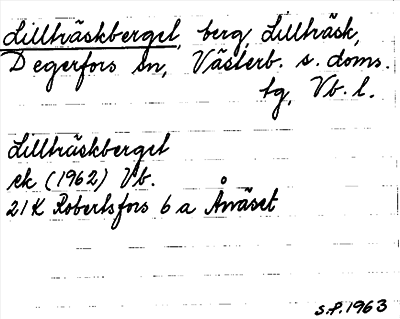 Lillträskberget, berg, Lillträsk,
Degerfors sn, Västerb. s. doms.
tg, Vb. l.
Lillträskberget
ek (1962) Vb.
21K Robertsfors 6 a Ånäset
S.P. 1963